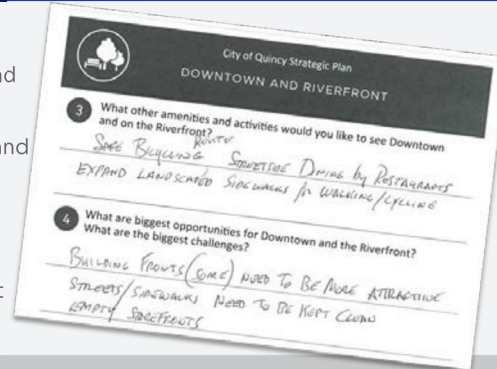 nd
and
t
City of Quincy Strategic Plan
DOWNTOWN AND RIVERFRONT
3 What other amenities and activities would you like to see Downtown
and on the Riverfront?
ROUTE
SAFE BICYCLING STREETSIDE DINING by RESTAURANTS
EXPAND LANDSCAPED SIDEWALKS for WALKING/CYCLING
4 What are biggest opportunities for Downtown and the Riverfront?
What are the biggest challenges?
BUILDING FRONTS (SOME) NEED TO BE MORE ATTRACTIVE
STREETS/SIDEWALKS NEED TO BE KEPT CLEAN
EMPTY STOREFRONTS